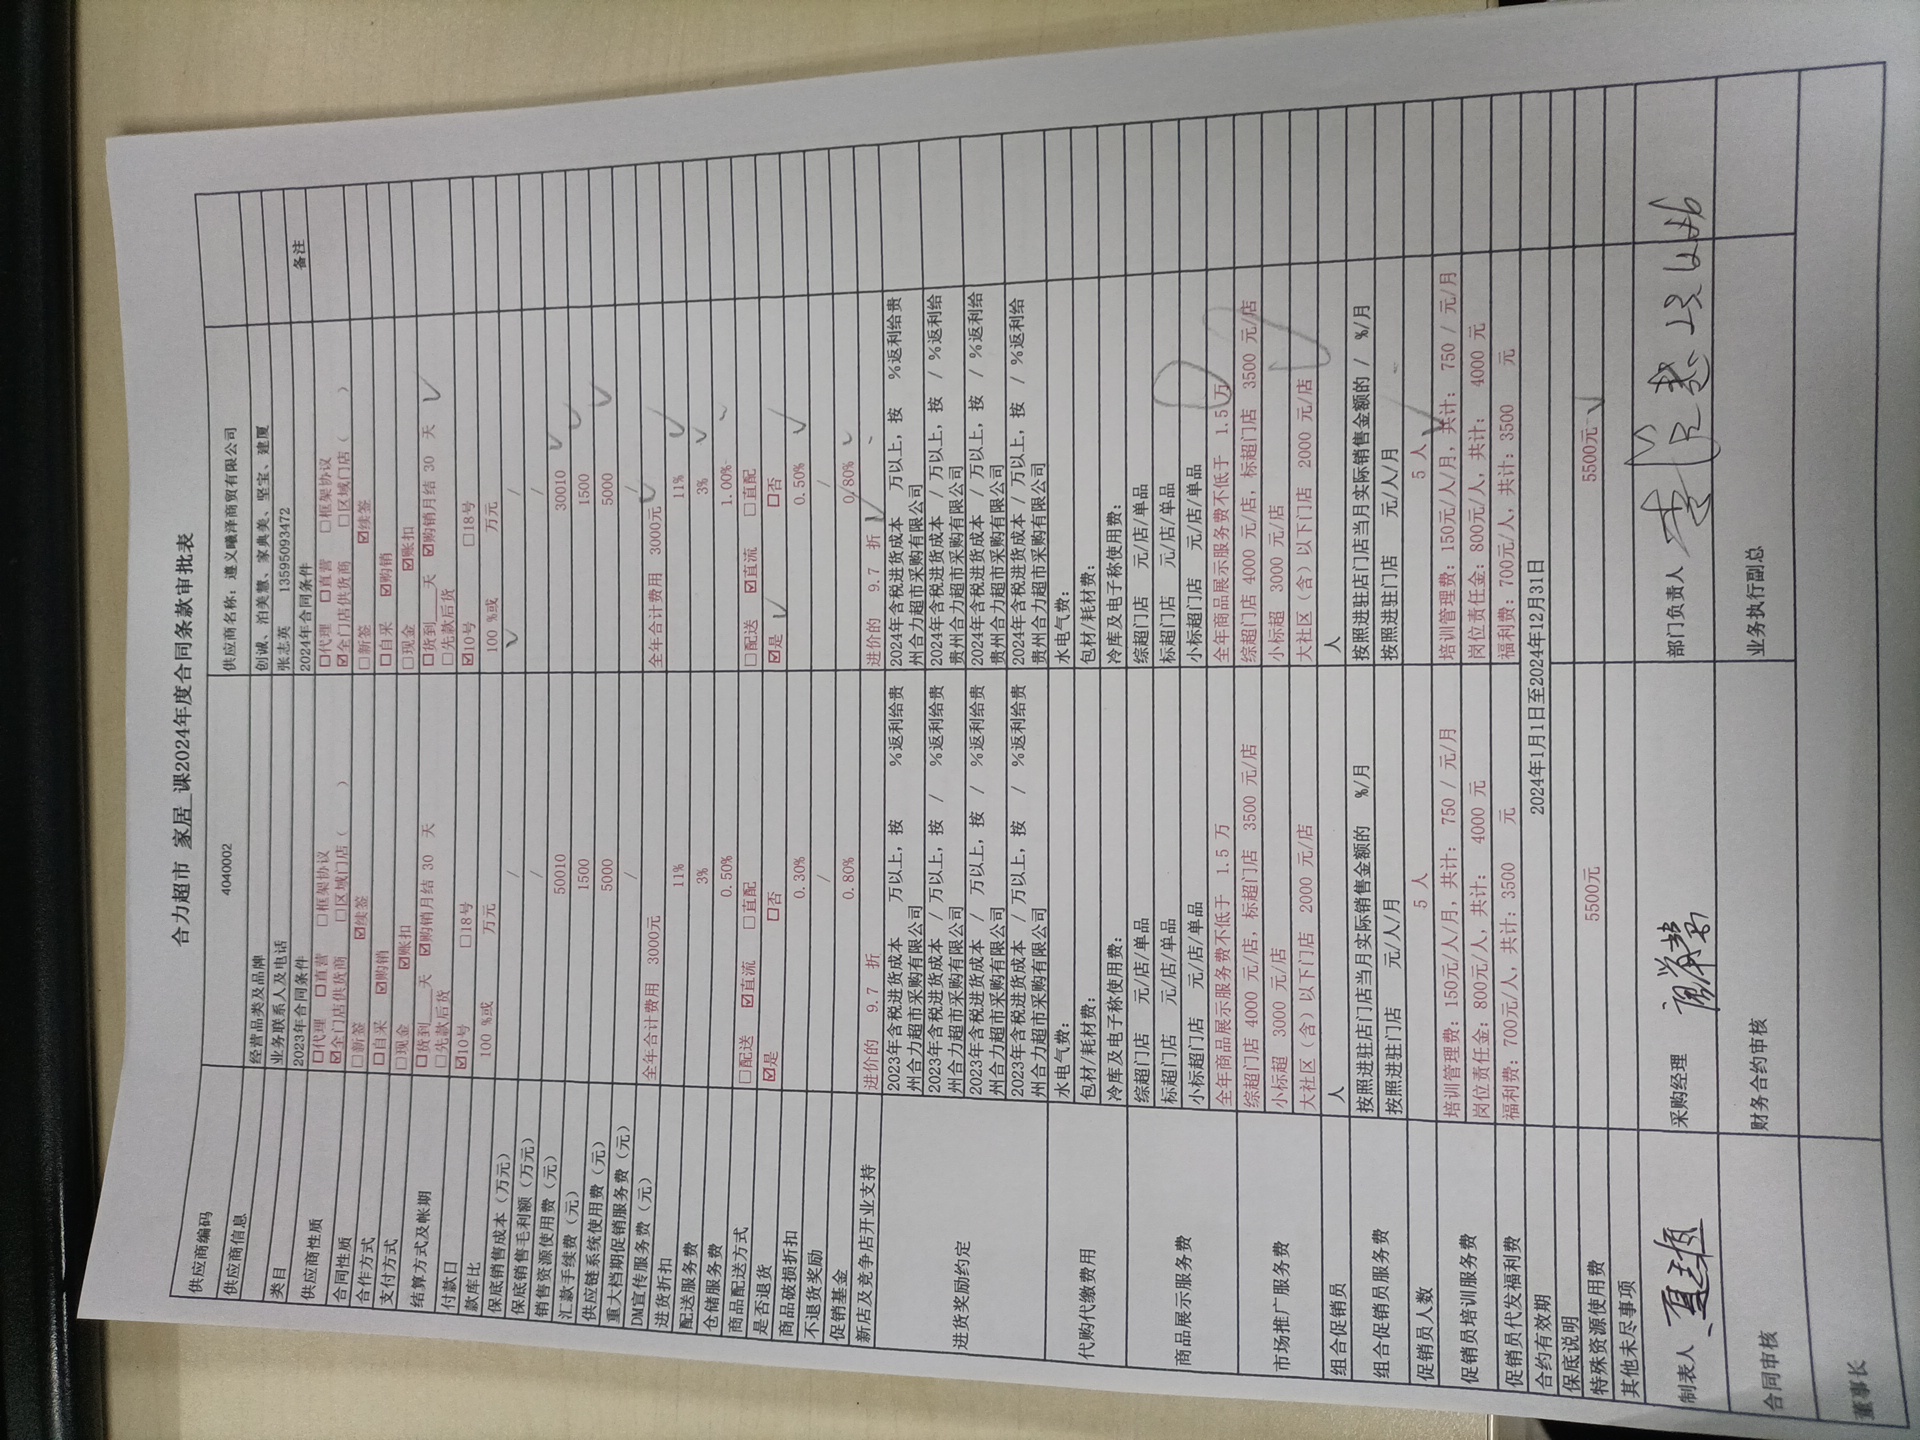 合力超市 家居_课2024年度合同条款审批表
供应商编码 4040002 供应商名称：遵义曦泽商贸有限公司
供应商信息 经营品类及品牌 创诚、泊美慧、家典美、坚宝、建厦
业务联系人及电话 张志英 13595093472
类目 2023年合同条件 2024年合同条件 备注
供应商性质 □代理 □直营 □框架协议 □代理 □直营 □框架协议
☑全门店供货商 □区域门店（ ） ☑全门店供货商 □区域门店（ ）
合同性质 □新签 ☑续签 □新签 ☑续签
合作方式 □自采 ☑购销 □自采 ☑购销
支付方式 □现金 ☑账扣 □现金 ☑账扣
结算方式及帐期 □货到____天 ☑购销月结 30 天 □货到____天 ☑购销月结 30 天
□先款后货 □先款后货
付款日 ☑10号 □18号 ☑10号 □18号
款库比 100 %或 万元 100 %或 万元
保底销售成本（万元） / /
保底销售毛利额（万元） / /
销售资源使用费（元） 50010 30010
汇款手续费（元） 1500 1500
供应链系统使用费（元） 5000 5000
重大档期促销服务费（元） / /
DM宣传服务费（元） 全年合计费用 3000元 全年合计费用 3000元
进货折扣 11% 11%
配送服务费 3% 3%
仓储服务费 0.50% 1.00%
商品配送方式 □配送 ☑直流 □直配 □配送 ☑直流 □直配
是否退货 ☑是 □否 ☑是 □否
商品破损折扣 0.30% 0.50%
不退货奖励 / /
促销基金 0.80% 0.80%
新店及竞争店开业支持 进价的 9.7 折 进价的 9.7 折
进货奖励约定 2023年含税进货成本 万以上，按 %返利给贵州合力超市采购有限公司 2024年含税进货成本 万以上，按 %返利给贵州合力超市采购有限公司
2023年含税进货成本 / 万以上，按 / %返利给贵州合力超市采购有限公司 2024年含税进货成本 / 万以上，按 / %返利给贵州合力超市采购有限公司
2023年含税进货成本 / 万以上，按 / %返利给贵州合力超市采购有限公司 2024年含税进货成本 / 万以上，按 / %返利给贵州合力超市采购有限公司
2023年含税进货成本 / 万以上，按 / %返利给贵州合力超市采购有限公司 2024年含税进货成本 / 万以上，按 / %返利给贵州合力超市采购有限公司
代购代缴费用 水电气费： 水电气费：
包材/耗材费： 包材/耗材费：
冷库及电子称使用费： 冷库及电子称使用费：
商品展示服务费 综超门店 元/店/单品 综超门店 元/店/单品
标超门店 元/店/单品 标超门店 元/店/单品
小标超门店 元/店/单品 小标超门店 元/店/单品
全年商品展示服务费不低于 1.5 万 全年商品展示服务费不低于 1.5 万
市场推广服务费 综超门店 4000 元/店，标超门店 3500 元/店 综超门店 4000 元/店，标超门店 3500 元/店
小标超 3000 元/店 小标超 3000 元/店
大社区（含）以下门店 2000 元/店 大社区（含）以下门店 2000 元/店
组合促销员 人 人
组合促销员服务费 按照进驻店门店当月实际销售金额的 %/月 按照进驻店门店当月实际销售金额的 / %/月
按照进驻门店 元/人/月 按照进驻门店 元/人/月
促销员人数 5 人 5 人
促销员培训服务费 培训管理费：150元/人/月，共计： 750 / 元/月 培训管理费：150元/人/月，共计： 750 / 元/月
岗位责任金：800元/人，共计： 4000 元 岗位责任金：800元/人，共计： 4000 元
促销员代发福利费 福利费：700元/人，共计：3500 元 福利费：700元/人，共计：3500 元
合约有效期 2024年1月1日至2024年12月31日
保底说明
特殊资源使用费 5500元 5500元
其他未尽事项
制表人 采购经理 部门负责人
合同审核 财务合约审核 业务执行副总
董事长